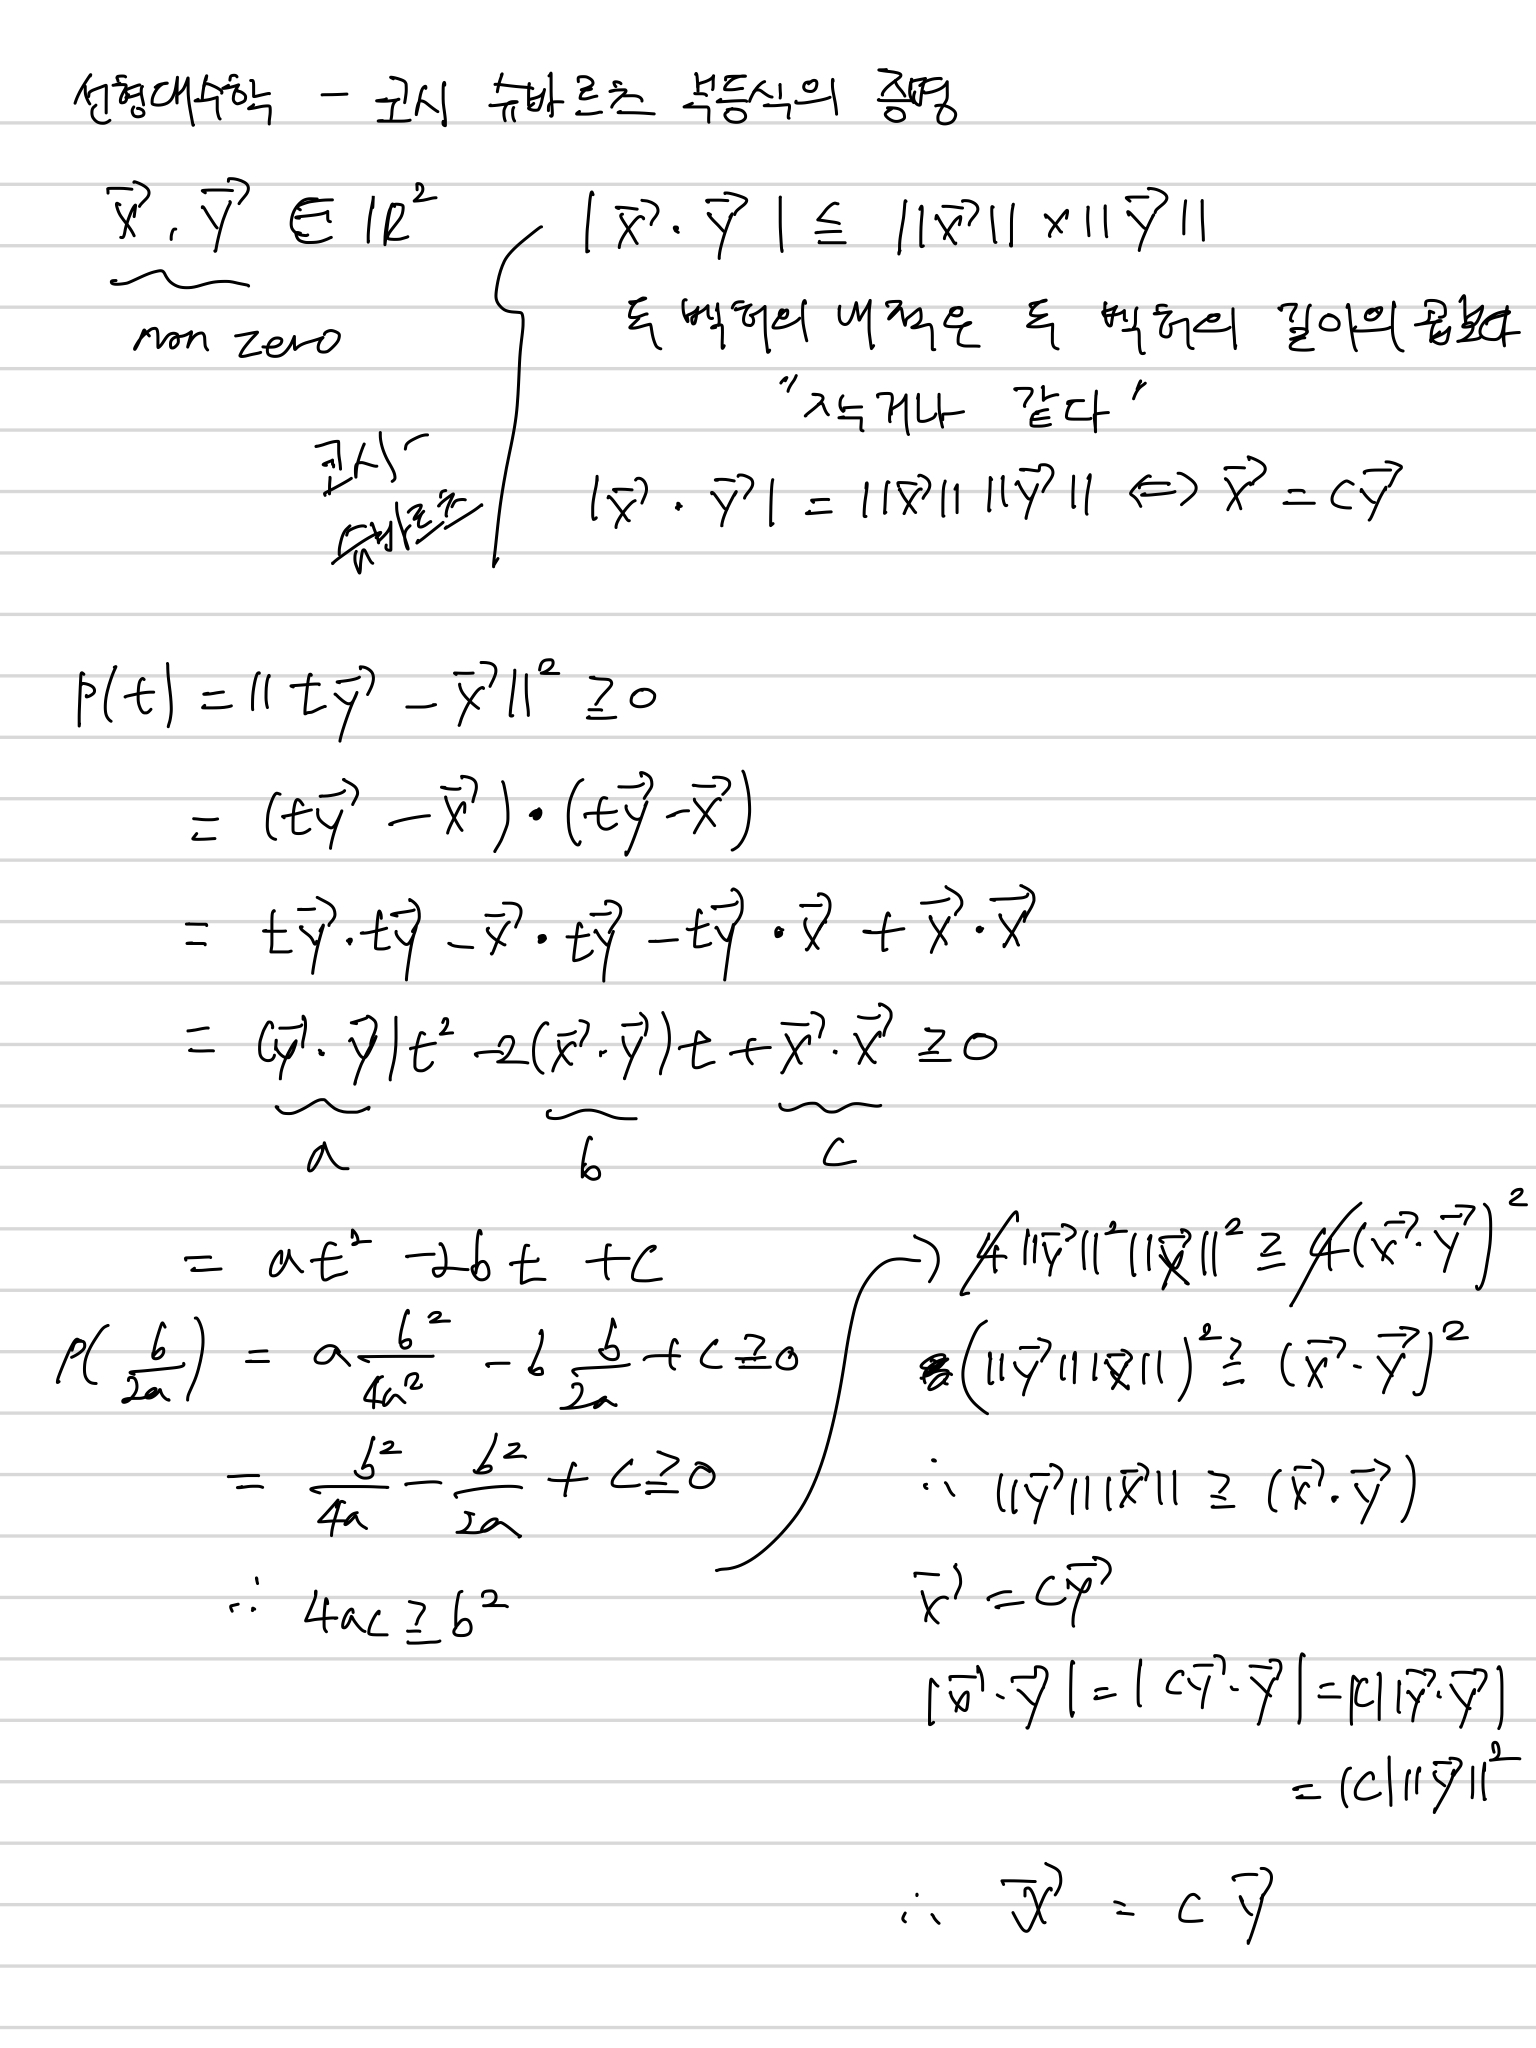 선형대수학 - 코시 슈바르츠 부등식의 증명
x⃗, y⃗ ∈ ℝ²
non zero
코시-
슈바르츠
|x⃗ · y⃗| ≤ ||x⃗|| × ||y⃗||
두 벡터의 내적은 두 벡터의 길이의 곱보다
"작거나 같다"
|x⃗ · y⃗| = ||x⃗|| ||y⃗|| ⇔ x⃗ = cy⃗
p(t) = ||ty⃗ - x⃗||² ≥ 0
= (ty⃗ - x⃗) · (ty⃗ - x⃗)
= ty⃗ · ty⃗ - x⃗ · ty⃗ - ty⃗ · x⃗ + x⃗ · x⃗
= (y⃗ · y⃗)t² - 2(x⃗ · y⃗)t + x⃗ · x⃗ ≥ 0
a b c
= at² - 2bt + c
P(b/2a) = a b²/4a² - b b/2a + c ≥ 0
= b²/4a - b²/2a + c ≥ 0
∴ 4ac ≥ b²
→ 4||y⃗||²||x⃗||² ≥ 4(x⃗ · y⃗)²
(||y⃗|| ||x⃗||)² ≥ (x⃗ · y⃗)²
∴ ||y⃗|| ||x⃗|| ≥ (x⃗ · y⃗)
x⃗ = cy⃗
|x⃗ · y⃗| = |cy⃗ · y⃗| = |c||y⃗ · y⃗|
= |c| ||y⃗||²
∴ x⃗ = c y⃗